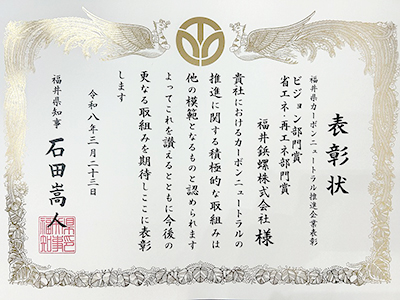 表彰状
福井県カーボンニュートラル推進企業表彰
ビジョン部門賞
省エネ・再エネ部門賞
福井鋲螺株式会社 様
貴社におけるカーボンニュートラルの
推進に関する積極的な取組みは
他の模範となるものと認められます
よってこれを讃えるとともに今後の
更なる取組みを期待しここに表彰
します
令和八年三月二十三日
福井県知事 石田嵩人